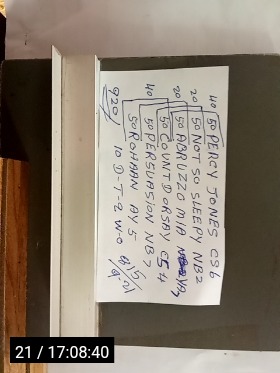 40 50 PERCY JONES CS6
20 50 NOT SO SLEEPY NB2
20 50 ABRUZZO MIA YA3
50 COUNT DORSAY CS4
40 50 PERSUASION NB7
50 ROHAAN AY5
920/ 10 D-T-2 W-O
21 / 17:08:40